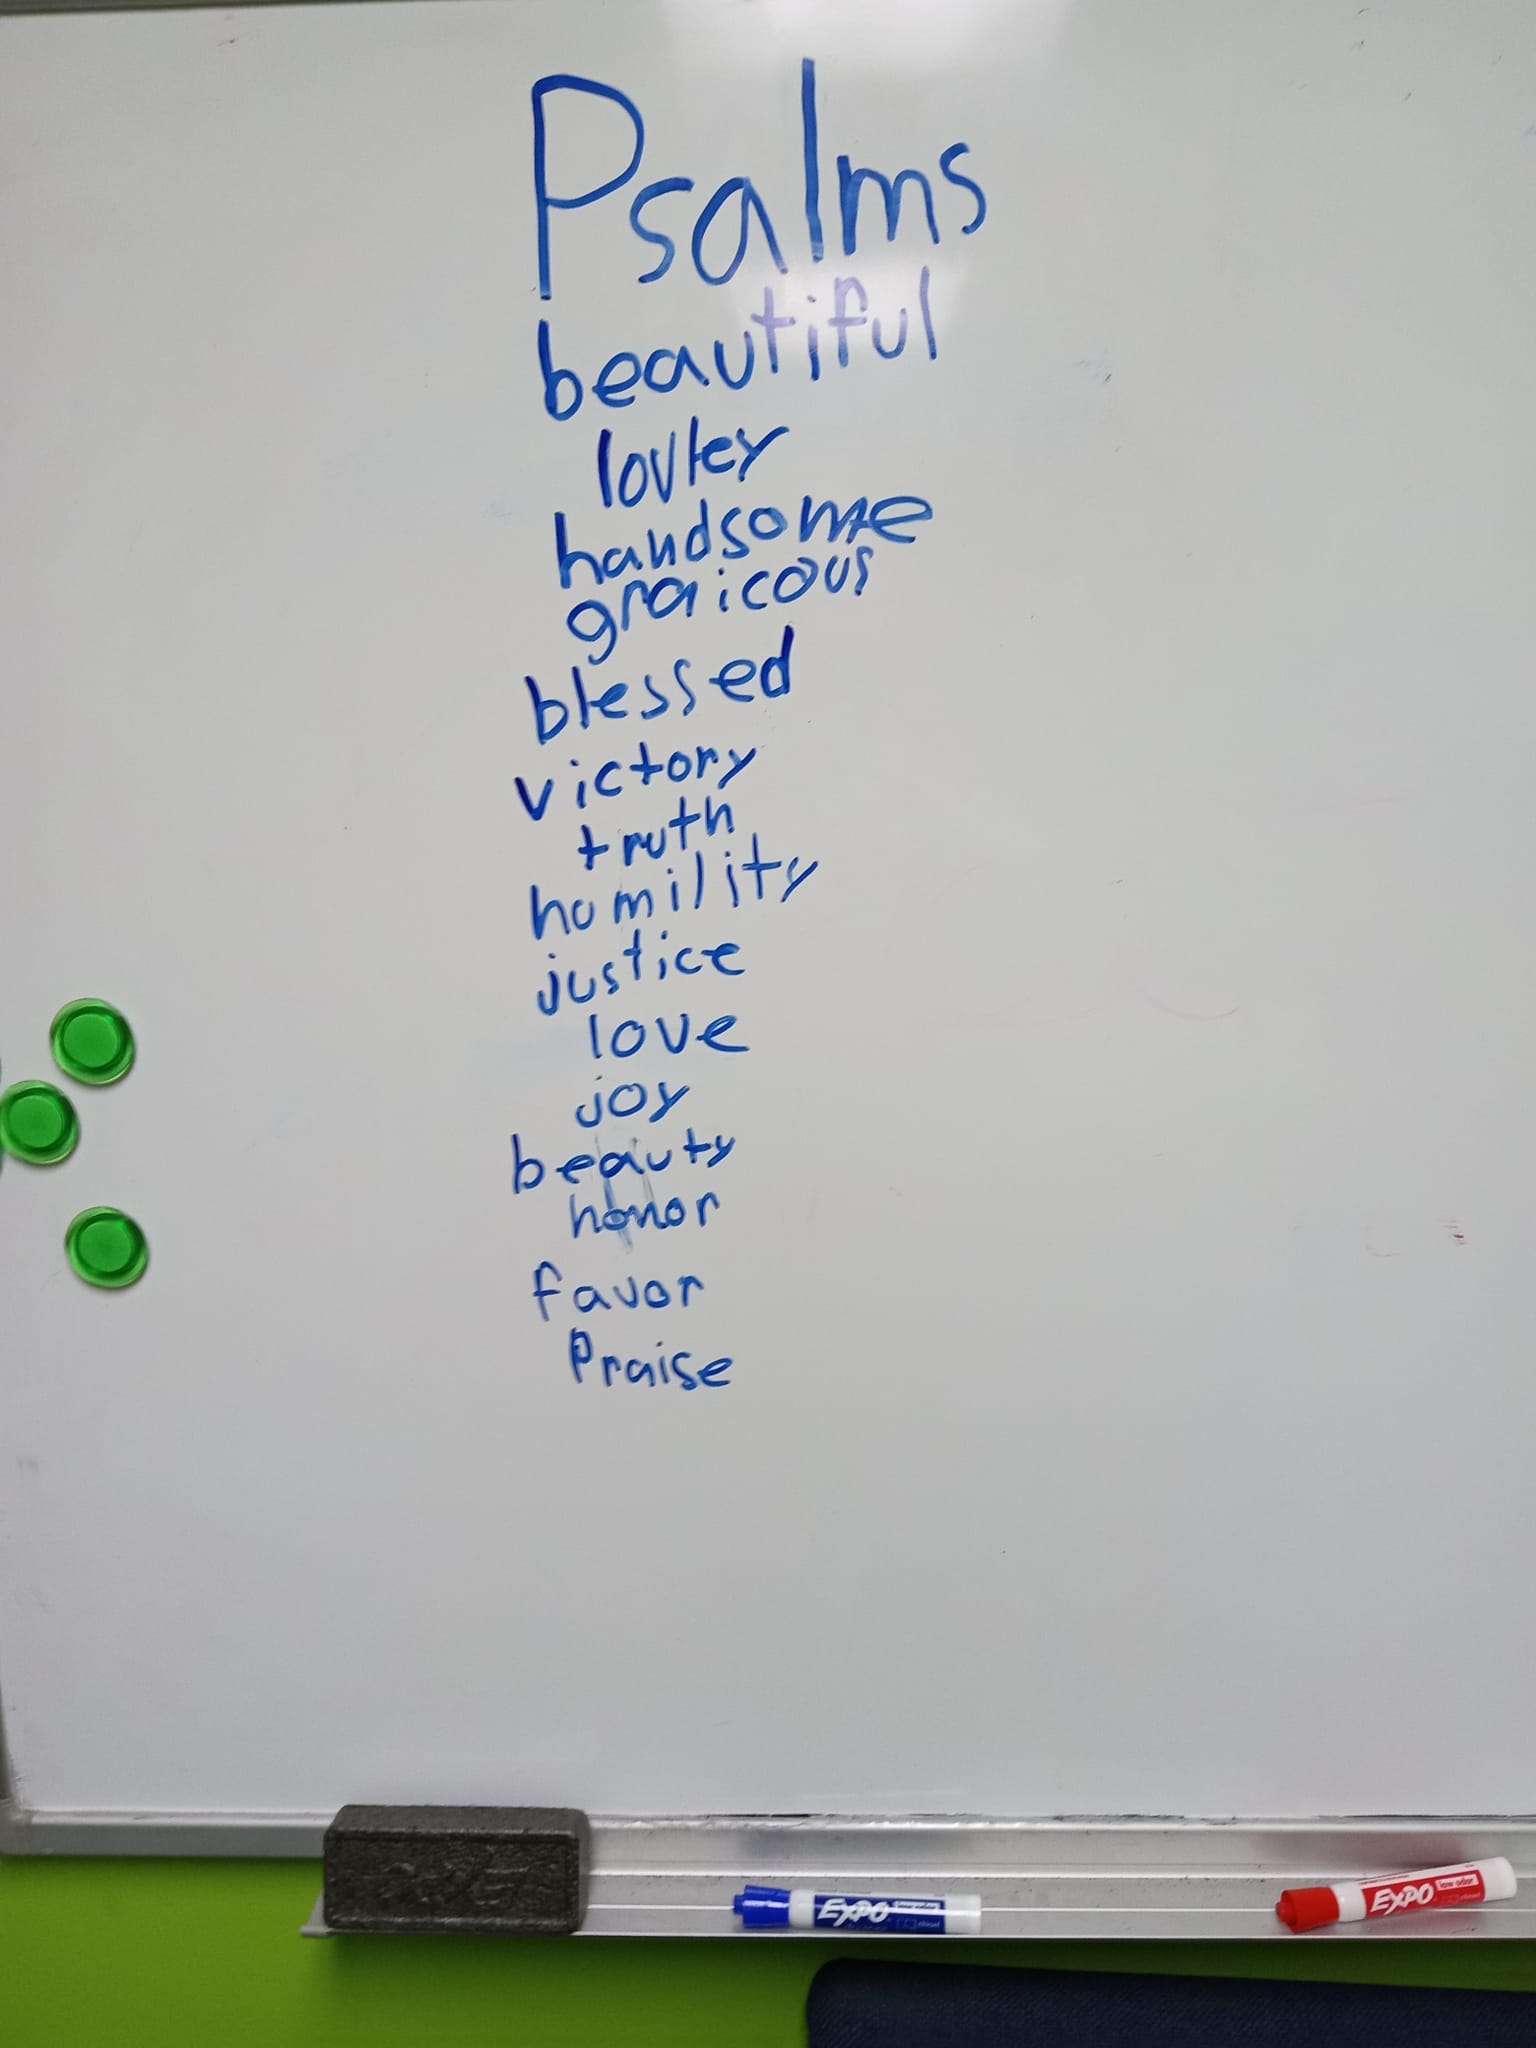 Psalms
beautiful
lovley
handsome
graicous
blessed
victory
truth
humility
justice
love
joy
beauty
honor
favor
Praise
EXPO
EXPO low odor